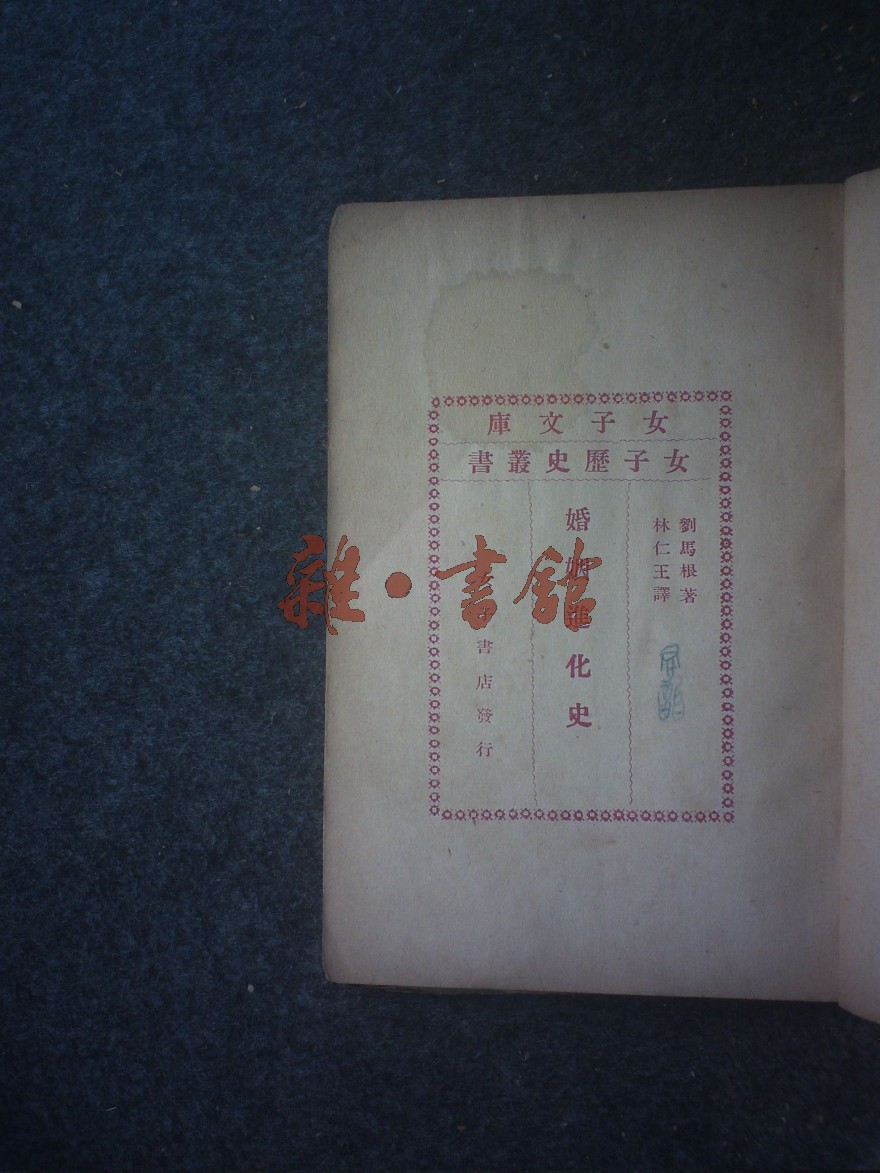 女子文庫
女子歷史叢書
劉馬根著
林仁王譯
婚姻進化史
女子書店發行
雜·書館